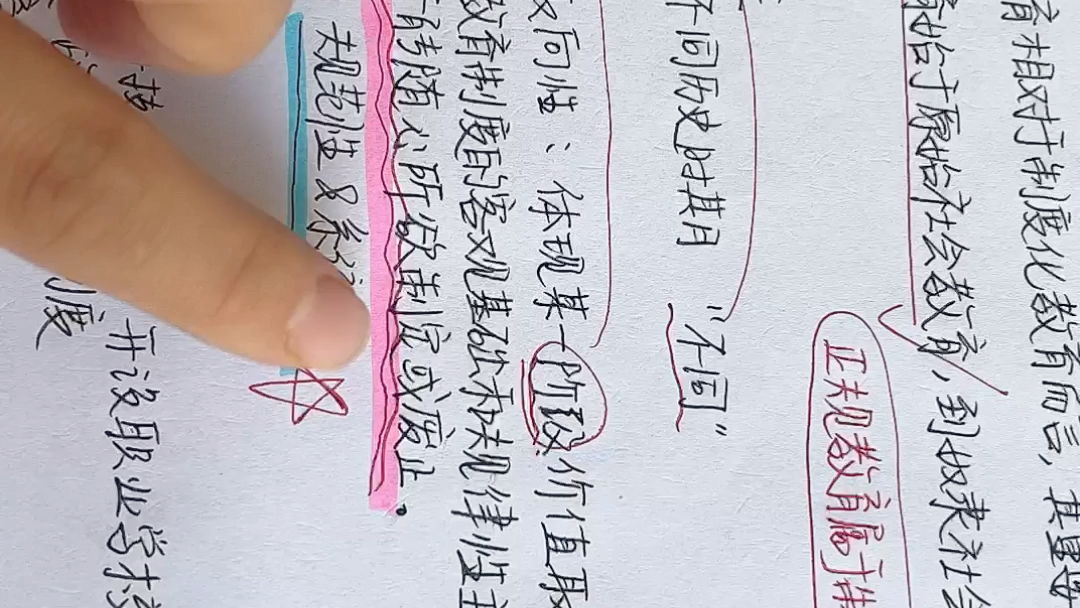 育相对于制度化教育而言，其更
始于原始社会教育，到奴隶社会
正规教育属于
不同历史时期 “不同”
向性：体现某一阶段价值取
教育制度的客观基础和规律性
能随心所欲制定或废止.
规范性&系
技 开设职业学校
度